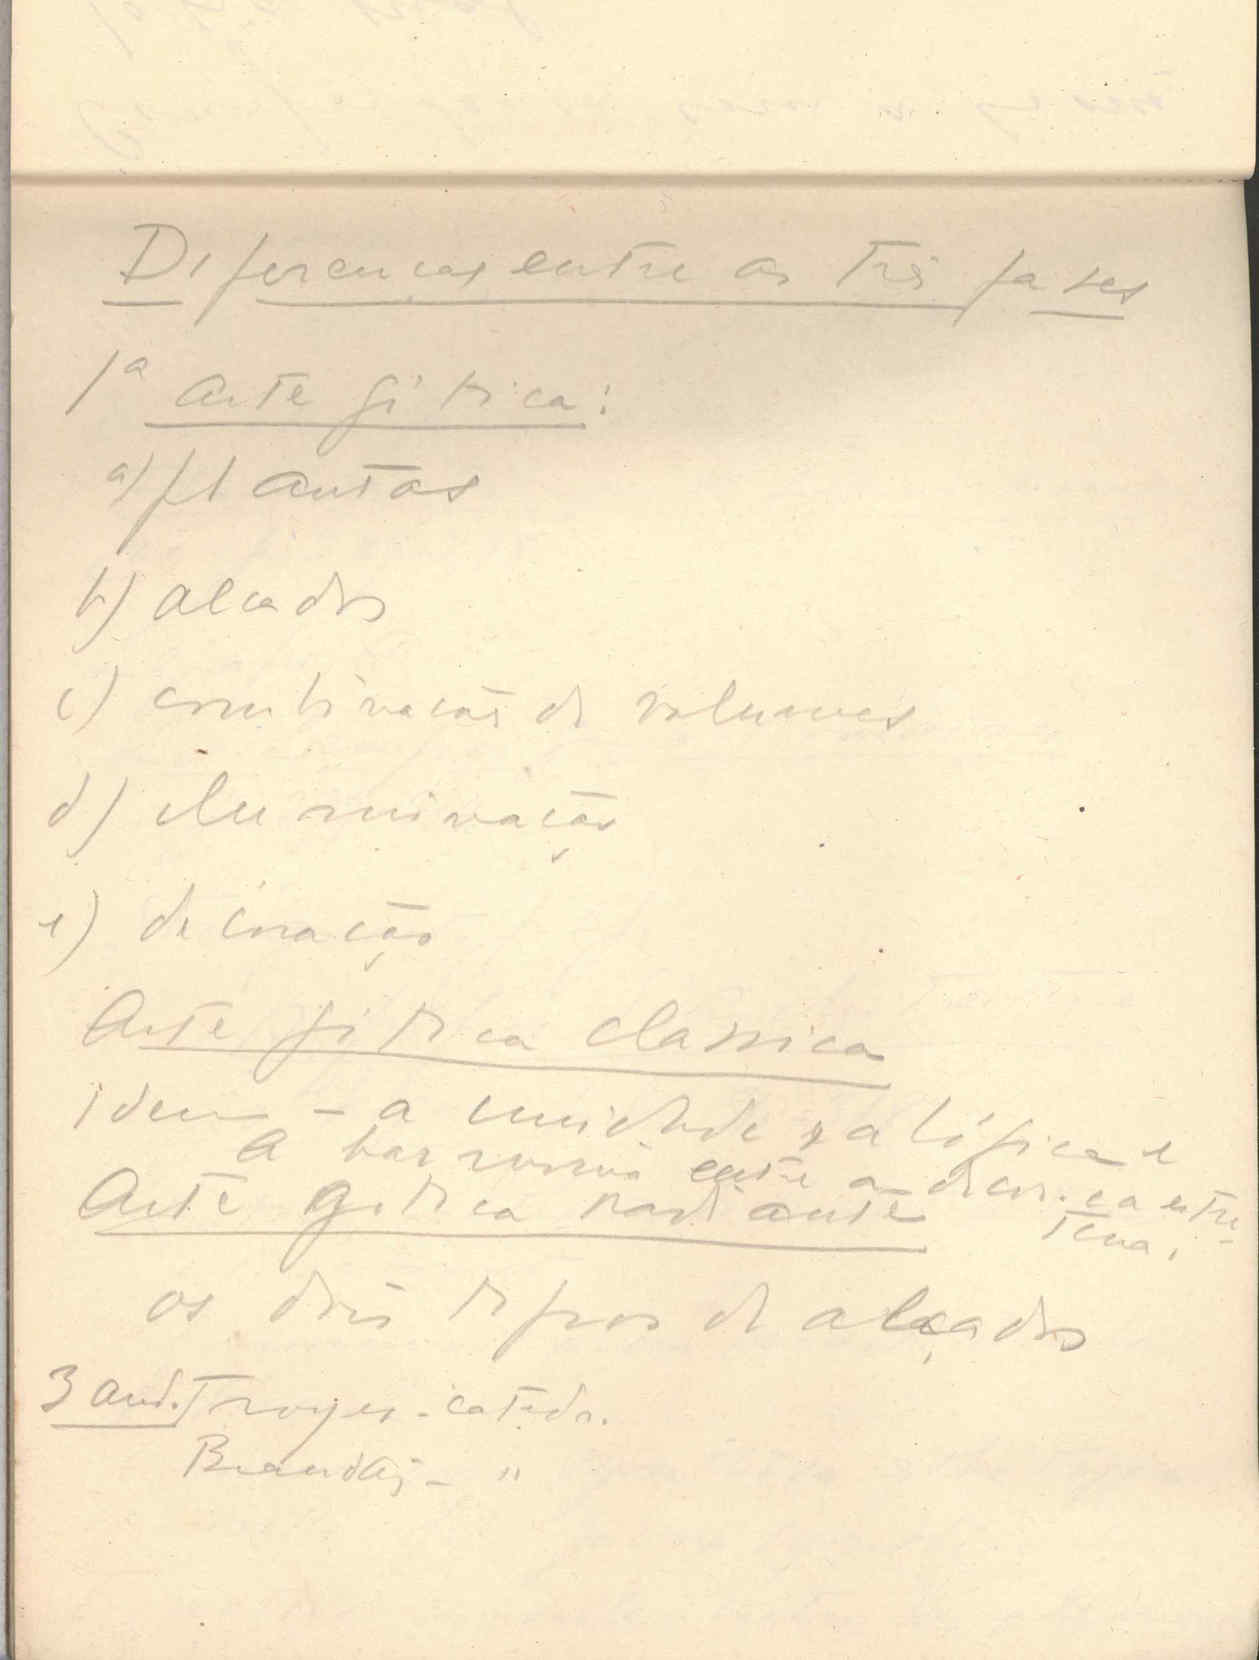 Diferenças entre as três fases
1ª arte gótica:
a) plantas
b) alcados
c) combinação de volumes
d) iluminação
e) decoração
Arte gótica classica
idem - a unidade, a lógica e
a harmonia entre a decor. e a estru-
tura.
Arte gotica radiante
os dois tipos de alçados
3 and. Troyes - catedr.
Beauvais - "